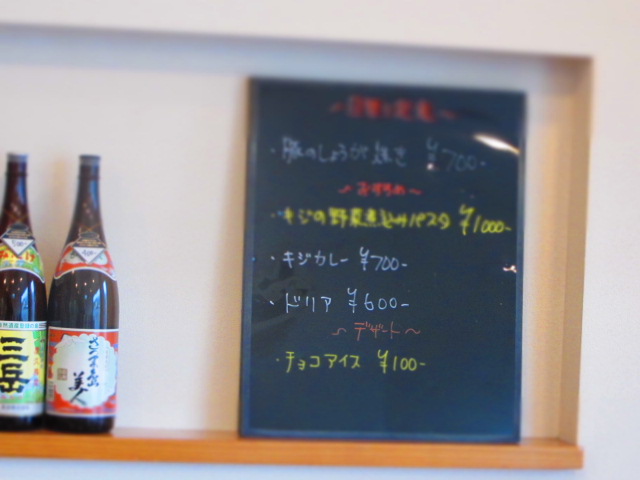 豚のしょうが焼き ¥700-
~おすすめ~
・キジの野菜煮込みパスタ ¥1000-
・キジカレー ¥700-
・ドリア ¥600-
~デザート~
・チョコアイス ¥100-
三岳
さつま島
美人